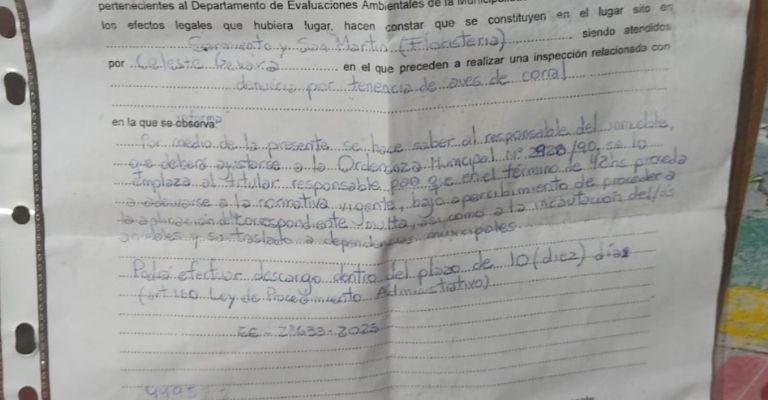 pertenecientes al Departamento de Evaluaciones Ambientales de la
los efectos legales que hubiera lugar, hacen constar que se constituyen en el lugar sito en
Sarmiento y San Martin (Floristeria) siendo atendidos
por Celeste Guevara en el que preceden a realizar una inspección relacionada con
denuncia por tenencia de aves de corral
en la que se observa: informa
Por medio de la presente se hace saber al responsable del inmueble,
que deberá ajustarse a la Ordenanza Municipal N° 2920/90, se lo
emplaza al titular responsable para que en el término de 42hs proceda
a adecuarse a la normativa vigente, bajo apercibimiento de proceder a
la aplicación de correspondiente multa, así como a la incautación del/as
animales y su traslado a dependencias municipales.
Podrá efectuar descargo dentro del plazo de 10 (diez) días
(art 160 Ley de Procedimiento Administrativo)
EE - 28633 - 2025